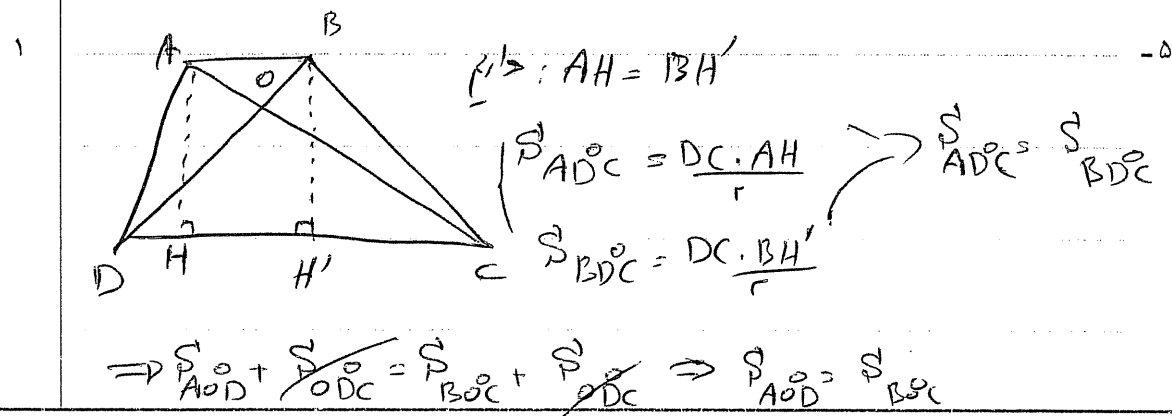 ۵-
۱
A B
O
D H H' C
داریم : AH = BH'
S_ADC = DC . AH / ۲
S_BDC = DC . BH' / ۲
S_ADC = S_BDC
⇒ S_AOD + S_ODC = S_BOC + S_ODC ⇒ S_AOD = S_BOC